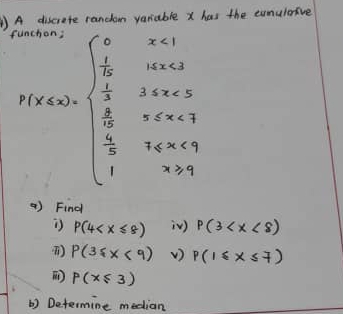 1) A discrete random variable X has the cumulative
function;
P(X ≤ x) =
0 x < 1
1/15 1 ≤ x < 3
1/3 3 ≤ x < 5
8/15 5 ≤ x < 7
4/5 7 ≤ x < 9
1 x ≥ 9
a) Find
i) P(4 < X ≤ 8) iv) P(3 < X < 8)
ii) P(3 ≤ X < 9) v) P(1 ≤ X ≤ 7)
iii) P(X ≤ 3)
b) Determine median